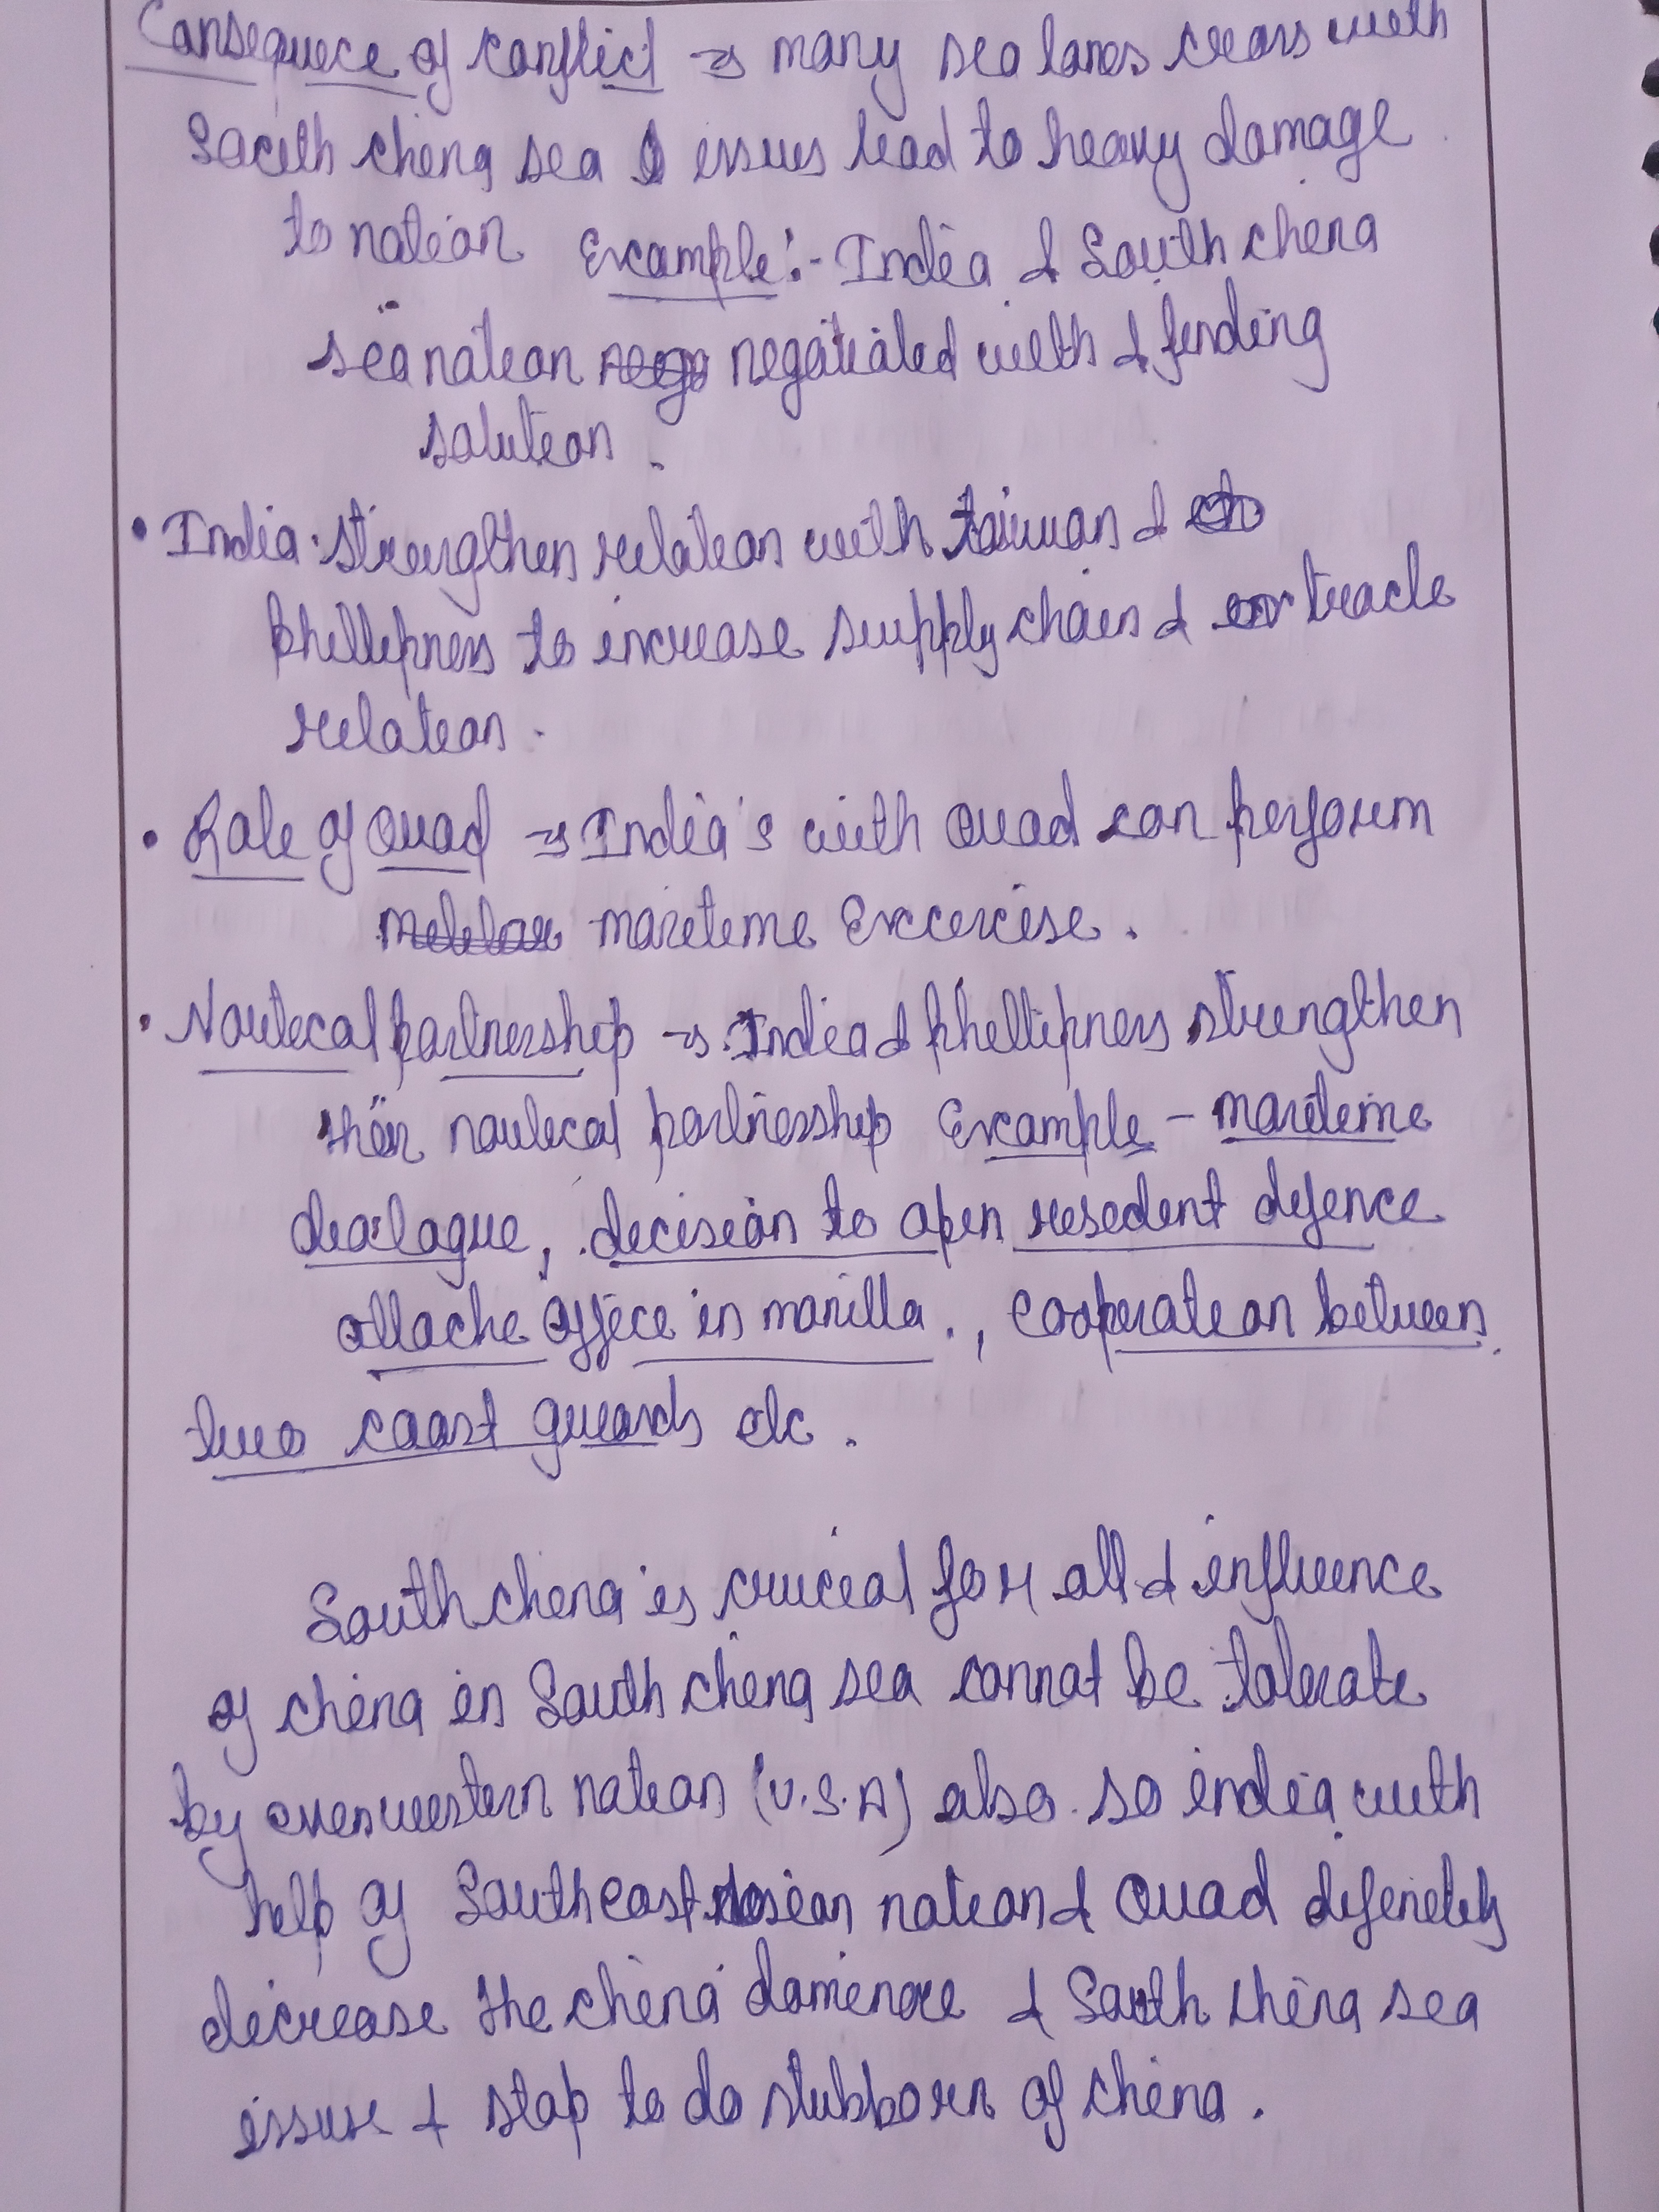 Consequece of conflict → many sea lanes cross with
South china sea & issues lead to heavy damage
to nation Example:- India & South china
sea nation negotiated with & finding
solution.
• India strengthen relation with taiwan &
phillipness to increase supply chain & trade
relation.
• Role of Quad → India's with Quad can perform
maritime Excercise.
• Nautical partnership → India & phillipness strengthen
their nautical partnership Example - maritime
dialogue, decision to open resident defence
attache office in manilla., cooperation between
two coast guards etc.
South china is crucial for all & influence
of china in South china sea cannot be tolerate
by even western nation (U.S.A) also. so india with
help of Southeast Asian nation & Quad definitely
decrease the china dominance & South china sea
issuse & stop to do stubborn of china.